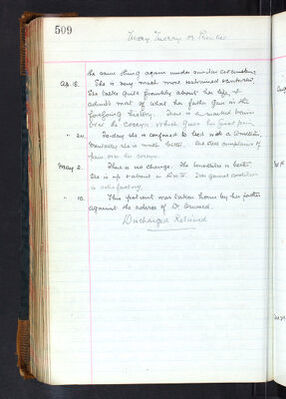 509
the same thing again under similar circumstances.
Ap. 18. She is very much more restrained & contented.
She talks quite frankly about her life, &
admits most of what her father gives in the
foregoing history. There is a marked
over the coccyx which gives her great pain.
" 24. Today she is confined to bed with a
she is much better. But still complains of
pain over the coccyx.
May 2. There is no change. The is better.
She is up & about in . Her general condition
is satisfactory.
" 10. This patient was taken home by her father
against the advice of Dr.
Discharged Relieved